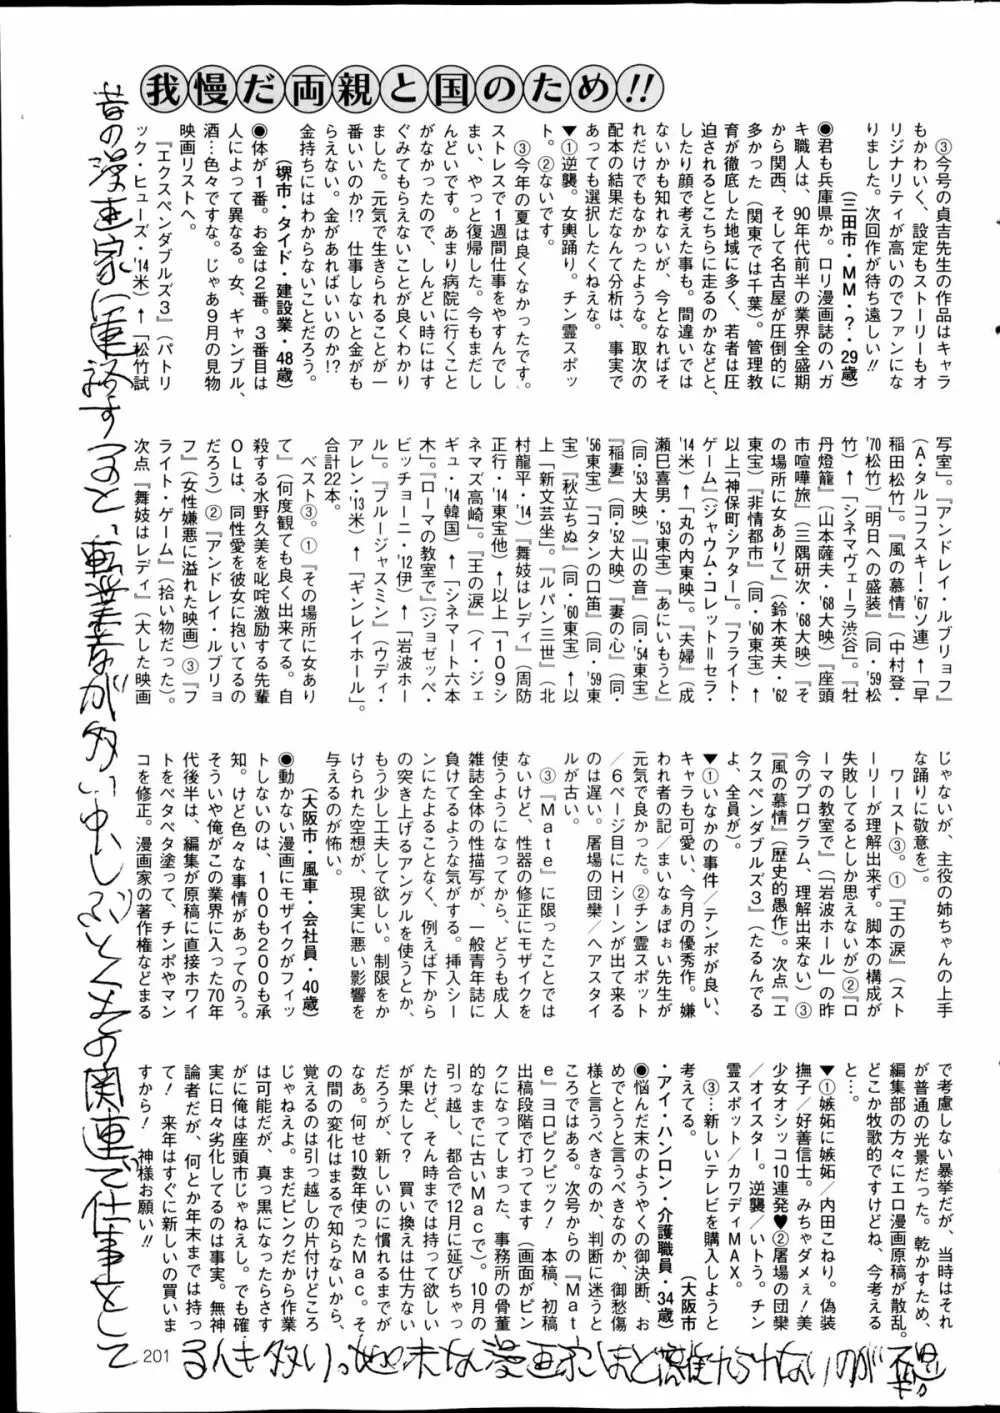 我慢だ両親と国のため!!
③今号の貞吉先生の作品はキャラ
もかわいく、設定もストーリーもオ
リジナリティが高いのでファンにな
りました。次回作が待ち遠しい!!
(三田市・MM・?・29歳)
●君も兵庫県か。ロリ漫画誌のハガ
キ職人は、90年代前半の業界全盛期
から関西、そして名古屋が圧倒的に
多かった(関東では千葉)。管理教
育が徹底した地域に多く、若者は圧
迫されるとこちらに走るのかなどと、
したり顔で考えた事も。間違いでは
ないかも知れないが、今となればそ
れだけでもなかったような。取次の
配本の結果だなんて分析は、事実で
あっても選択したくねえな。
▼①逆襲。女輿踊り。チン霊スポッ
ト。②ないです。
③今年の夏は良くなかったです。
ストレスで1週間仕事をやすんでし
まい、やっと復帰した。今もまだし
んどいです。あまり病院に行くこと
がなかったので、しんどい時にはす
ぐみてもらえないことが良くわかり
ました。元気で生きられることが一
番いいのか!? 仕事しないと金がも
らえない。金があればいいのか!?
金持ちにはわからないことだろう。
(堺市・タイド・建設業・48歳)
●体が1番。お金は2番。3番目は
人によって異なる。女、ギャンブル、
酒…色々ですな。じゃあ9月の見物
映画リストへ。
『エクスペンダブルズ3』(パトリ
ック・ヒューズ・'14米)↑「松竹試
写室」。『アンドレイ・ルブリョフ』
(A・タルコフスキー・'67ソ連)↑「早
稲田松竹」。『風の慕情』(中村登・
'70松竹)『明日への盛装』(同・'59松
竹)↑「シネマヴェーラ渋谷」。『牡
丹燈籠』(山本薩夫・'68大映)『座頭
市喧嘩旅』(三隅研次・'68大映)『そ
の場所に女ありて』(鈴木英夫・'62
東宝)『非情都市』(同・'60東宝)↑
以上「神保町シアター」。『フライト・
ゲーム』(ジャウム・コレット=セラ・
'14米)↑「丸の内東映」。『夫婦』(成
瀬巳喜男・'53東宝)『あにいもうと』
(同・'53大映)『山の音』(同・'54東宝)
『稲妻』(同・'52大映)『妻の心』(同・
'56東宝)『コタンの口笛』(同・'59東
宝)『秋立ちぬ』(同・'60東宝)↑以
上「新文芸坐」。『ルパン三世』(北
村龍平・'14)『舞妓はレディ』(周防
正行・'14東宝他)↑以上「109シ
ネマズ高崎」。『王の涙』(イ・ジェ
ギュ・'14韓国)↑「シネマート六本
木」。『ローマの教室で』(ジョゼッペ・
ビッチョーニ・'12伊)↑「岩波ホー
ル」。『ブルージャスミン』(ウディ・
アレン・'13米)↑「ギンレイホール」。
合計22本。
ベスト③。①『その場所に女あり
て』(何度観ても良く出来てる。自
殺する水野久美を叱咤激励する先輩
OLは、同性愛を彼女に抱いてるの
だろう)②『アンドレイ・ルブリョ
フ』(女性嫌悪に溢れた映画)③『フ
ライト・ゲーム』(拾い物だった)。
次点『舞妓はレディ』(大した映画
じゃないが、主役の姉ちゃんの上手
な踊りに敬意を)。
ワースト③。①『王の涙』(スト
ーリーが理解出来ず。脚本の構成が
失敗してるとしか思えないが)②『ロ
ーマの教室で』(「岩波ホール」の昨
今のプログラム、理解出来ない)③
『風の慕情』(歴史的愚作)。次点『エ
クスペンダブルズ3』(たるんでる
よ、全員が)。
▼①いなかの事件/テンポが良い、
キャラも可愛い、今月の優秀作。嫌
われ者の記/まいなぁぼぉい先生が
元気で良かった。②チン霊スポット
/6ページ目にHシーンが出て来る
のは遅い。屠場の団欒/ヘアスタイ
ルが古い。
③『Mate』に限ったことでは
ないけど、性器の修正にモザイクを
使うようになってから、どうも成人
雑誌全体の性描写が、一般青年誌に
負けてるような気がする。挿入シー
ンにたよることなく、例えば下から
の突き上げるアングルを使うとか、
もう少し工夫して欲しい。制限をか
けられた空想が、現実に悪い影響を
与えるのが怖い。
(大阪市・風車・会社員・40歳)
●動かない漫画にモザイクがフィッ
トしないのは、100も200も承
知。けど色々な事情があってのう。
そういや俺がこの業界に入った70年
代後半は、編集が原稿に直接ホワイ
トをペタペタ塗って、チンポやマン
コを修正。漫画家の著作権などまる
で考慮しない暴挙だが、当時はそれ
が普通の光景だった。乾かすため、
編集部の方々にエロ漫画原稿が散乱。
どこか牧歌的ですけどね、今考える
と…。
▼①嫉妬に嫉妬/内田こねり。偽装
撫子/好善信士。みちゃダメぇ!美
少女オシッコ10連発♥②屠場の団欒
/オイスター。逆襲/いトう。チン
霊スポット/カワディMAX。
③…新しいテレビを購入しようと
考えてる。
(大阪市
・アイ・ハンロン・介護職員・34歳)
●悩んだ末のようやくの御決断、お
めでとうと言うべきなのか、御愁傷
様と言うべきなのか、判断に迷うと
ころではある。次号からの『Mat
e』ヨロピクピック! 本稿、初稿
出稿段階で打ってます(画面がピン
クになってしまった、事務所の骨董
的なまでに古いMacで)。10月の
引っ越し、都合で12月に延びちゃっ
たけど、そん時までは持って欲しい
が果たして? 買い換えは仕方ない
だろうが、新しいのに慣れるまでが
なあ。何せ10数年使ったMac。そ
の間の変化はまるで知らないから、
覚えるのは引っ越しの片付けどころ
じゃねえよ。まだピンクだから作業
は可能だが、真っ黒になったらさす
がに俺は座頭市じゃねえし。でも確
実に日々劣化してるのは事実。無神
論者だが、何とか年末までは持っ
て! 来年はすぐに新しいの買いま
すから! 神様お願い!!
昔の漫画家に電話すると、転業者が多い中しぶとくエロ関連で仕事をして
るんも多い。
201